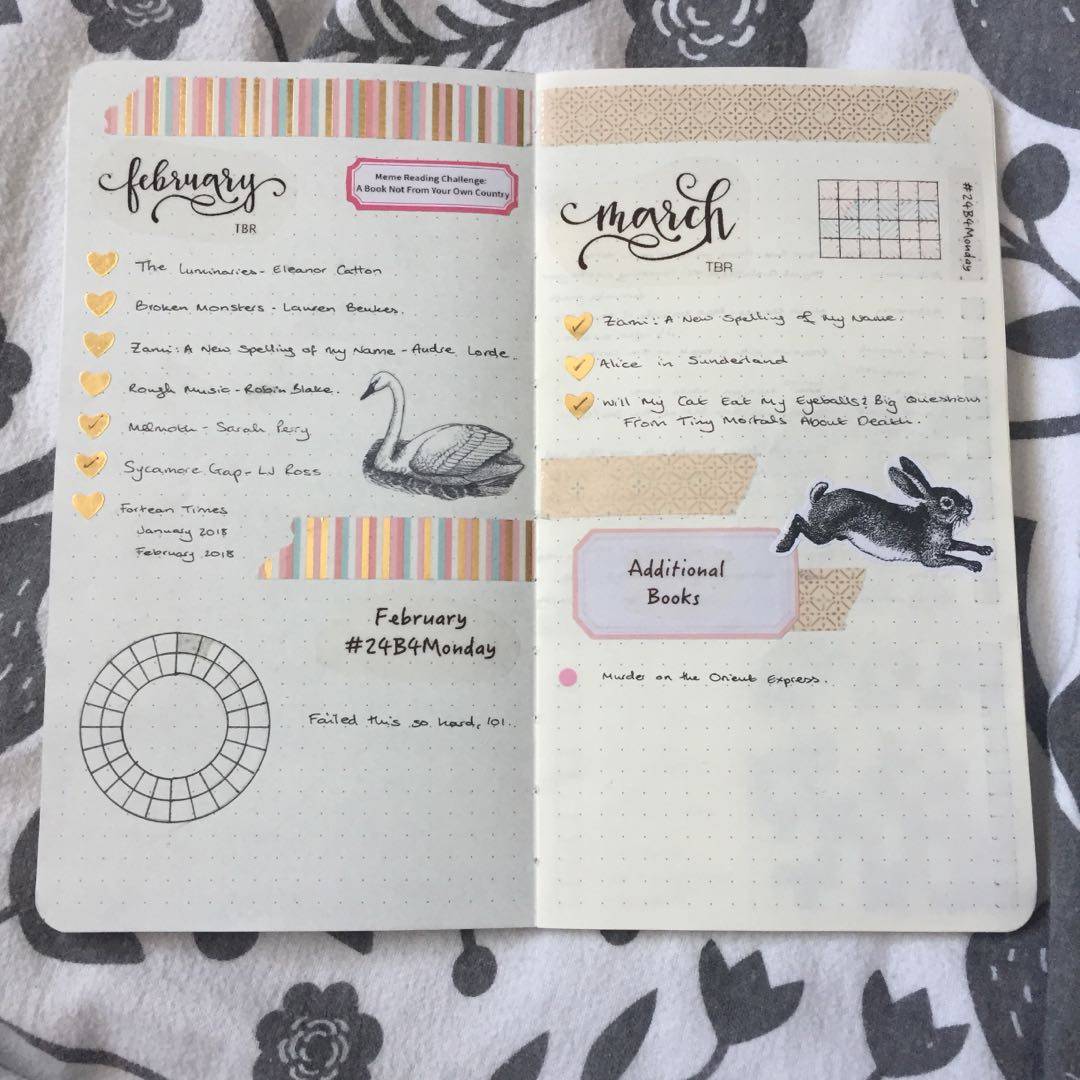 february
TBR
Meme Reading Challenge:
A Book Not From Your Own Country
The Luminaries - Eleanor Catton
Broken Monsters - Lauren Beukes.
Zami: A New Spelling of my Name - Audre Lorde.
Rough Music - Robin Blake.
Melmoth - Sarah Perry
Sycamore Gap - LJ Ross
Fortean Times
January 2018
February 2018
February
#24B4Monday
Failed this so hard, lol.
march
TBR
#24B4Monday
Zami: A New Spelling of my Name.
Alice in Sunderland
Will My Cat Eat My Eyeballs? Big Questions
From Tiny Mortals About Death.
Additional
Books
Murder on the Orient Express.